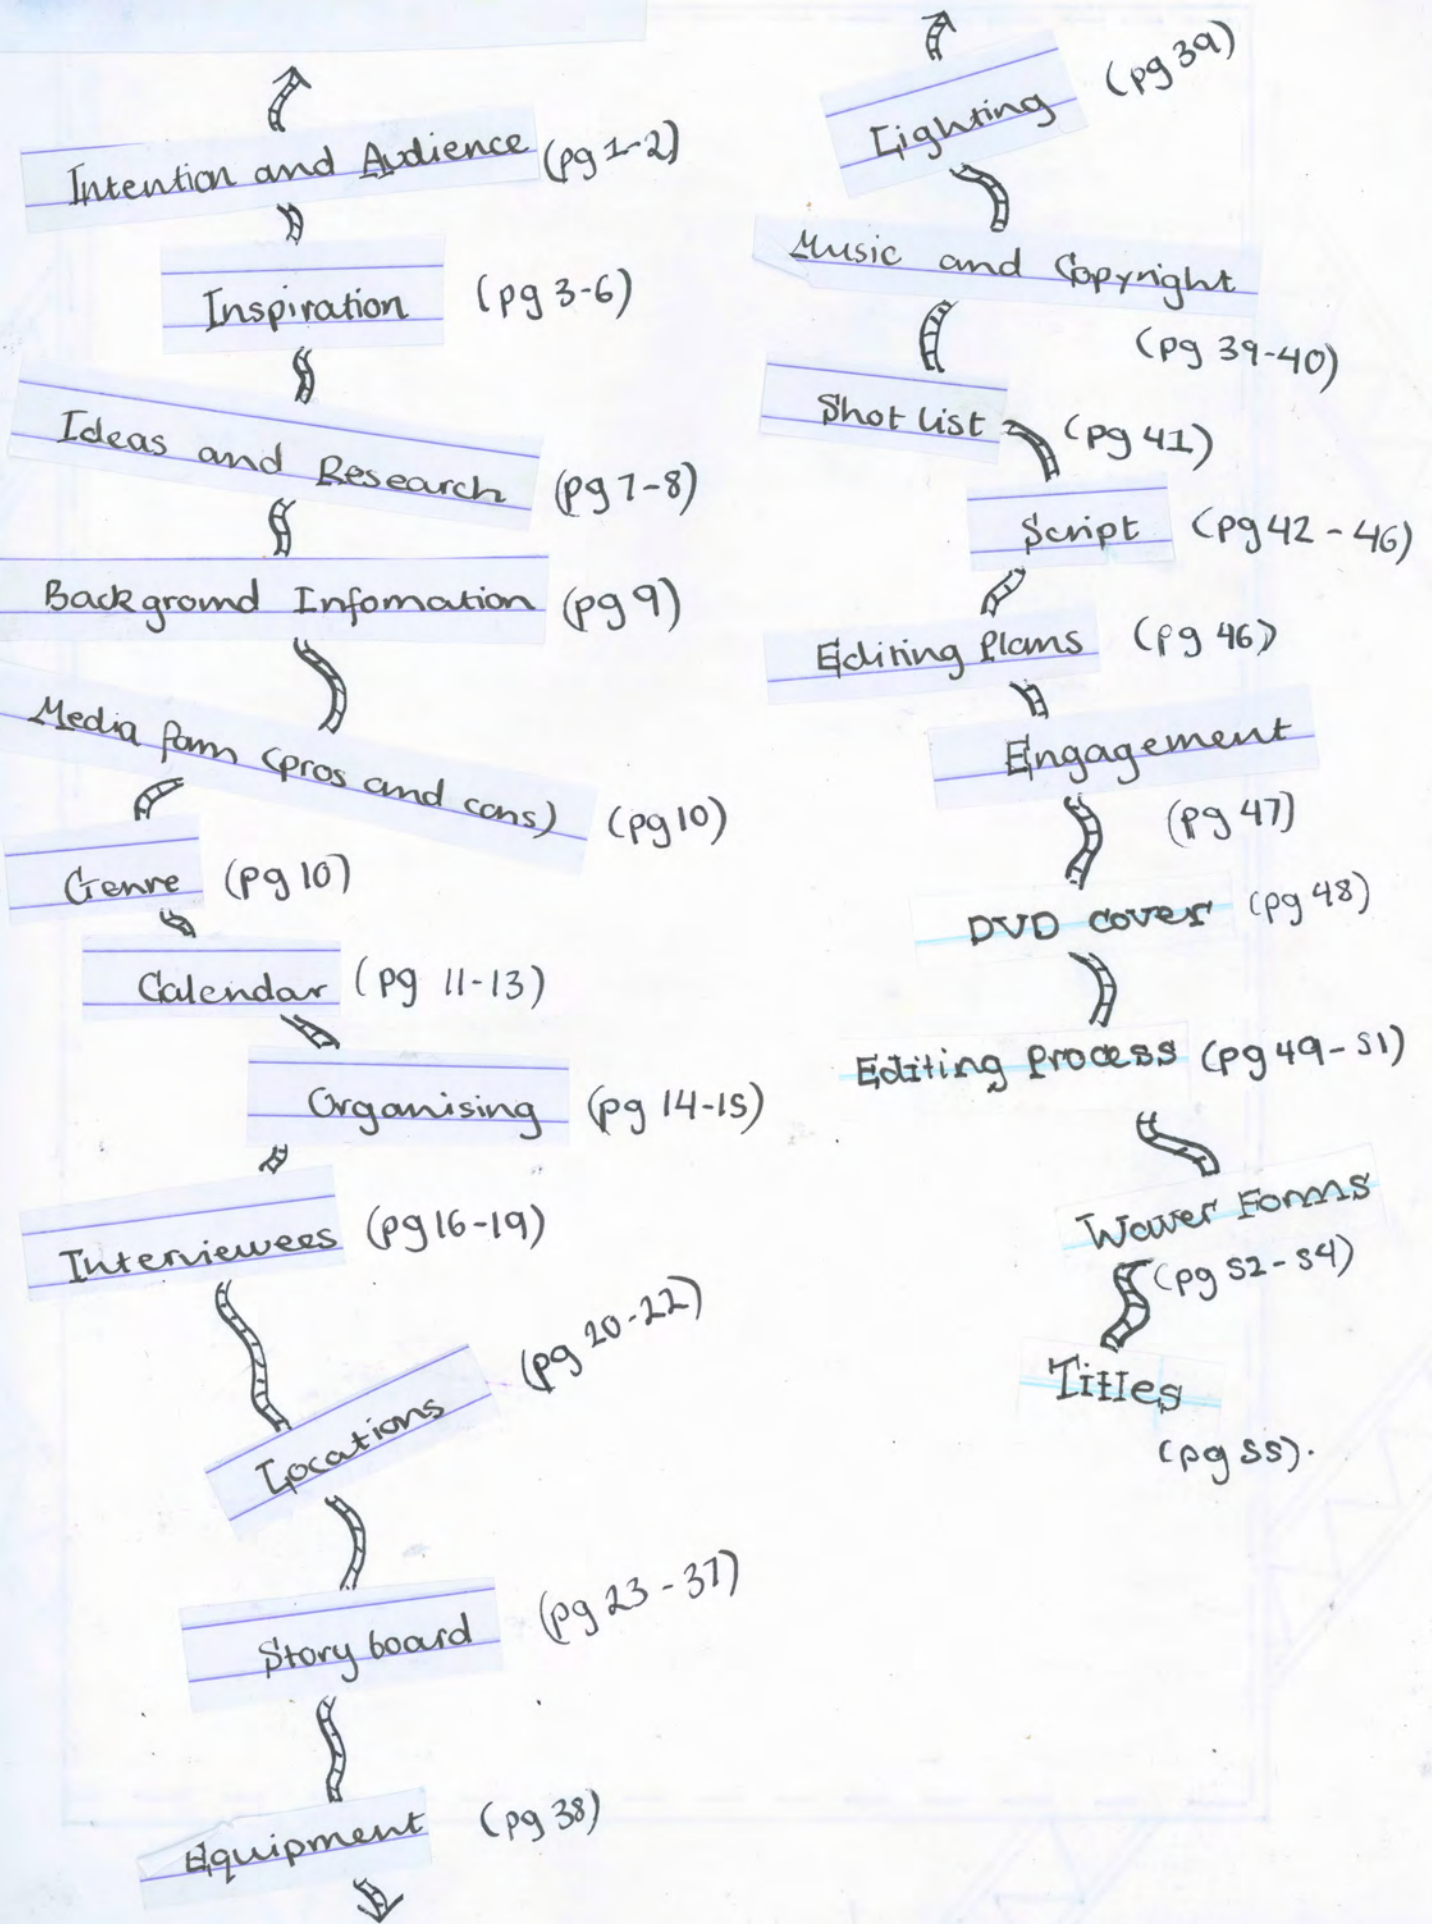 Intention and Audience (pg 1-2)
Inspiration (pg 3-6)
Ideas and Research (pg 7-8)
Background Infomation (pg 9)
Media form (pros and cons) (pg 10)
Genre (pg 10)
Calendar (pg 11-13)
Organising (pg 14-15)
Interviewees (pg 16-19)
Locations (pg 20-22)
Story board (pg 23-37)
Equipment (pg 38)
Lighting (pg 39)
Music and Copyright
(pg 39-40)
Shot list (pg 41)
Script (pg 42-46)
Editing Plans (pg 46)
Engagement
(pg 47)
DVD cover (pg 48)
Editing Process (pg 49-51)
Waver Forms
(pg 52-54)
Titles
(pg 55).